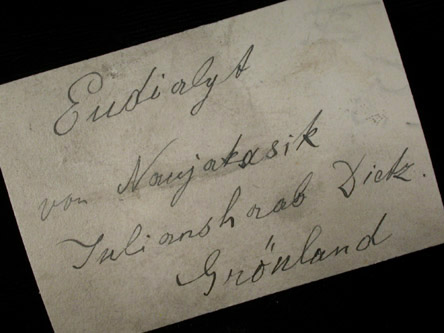 Eudialyt
von Naujakasik
Julianshaab Dickz.
Grönland